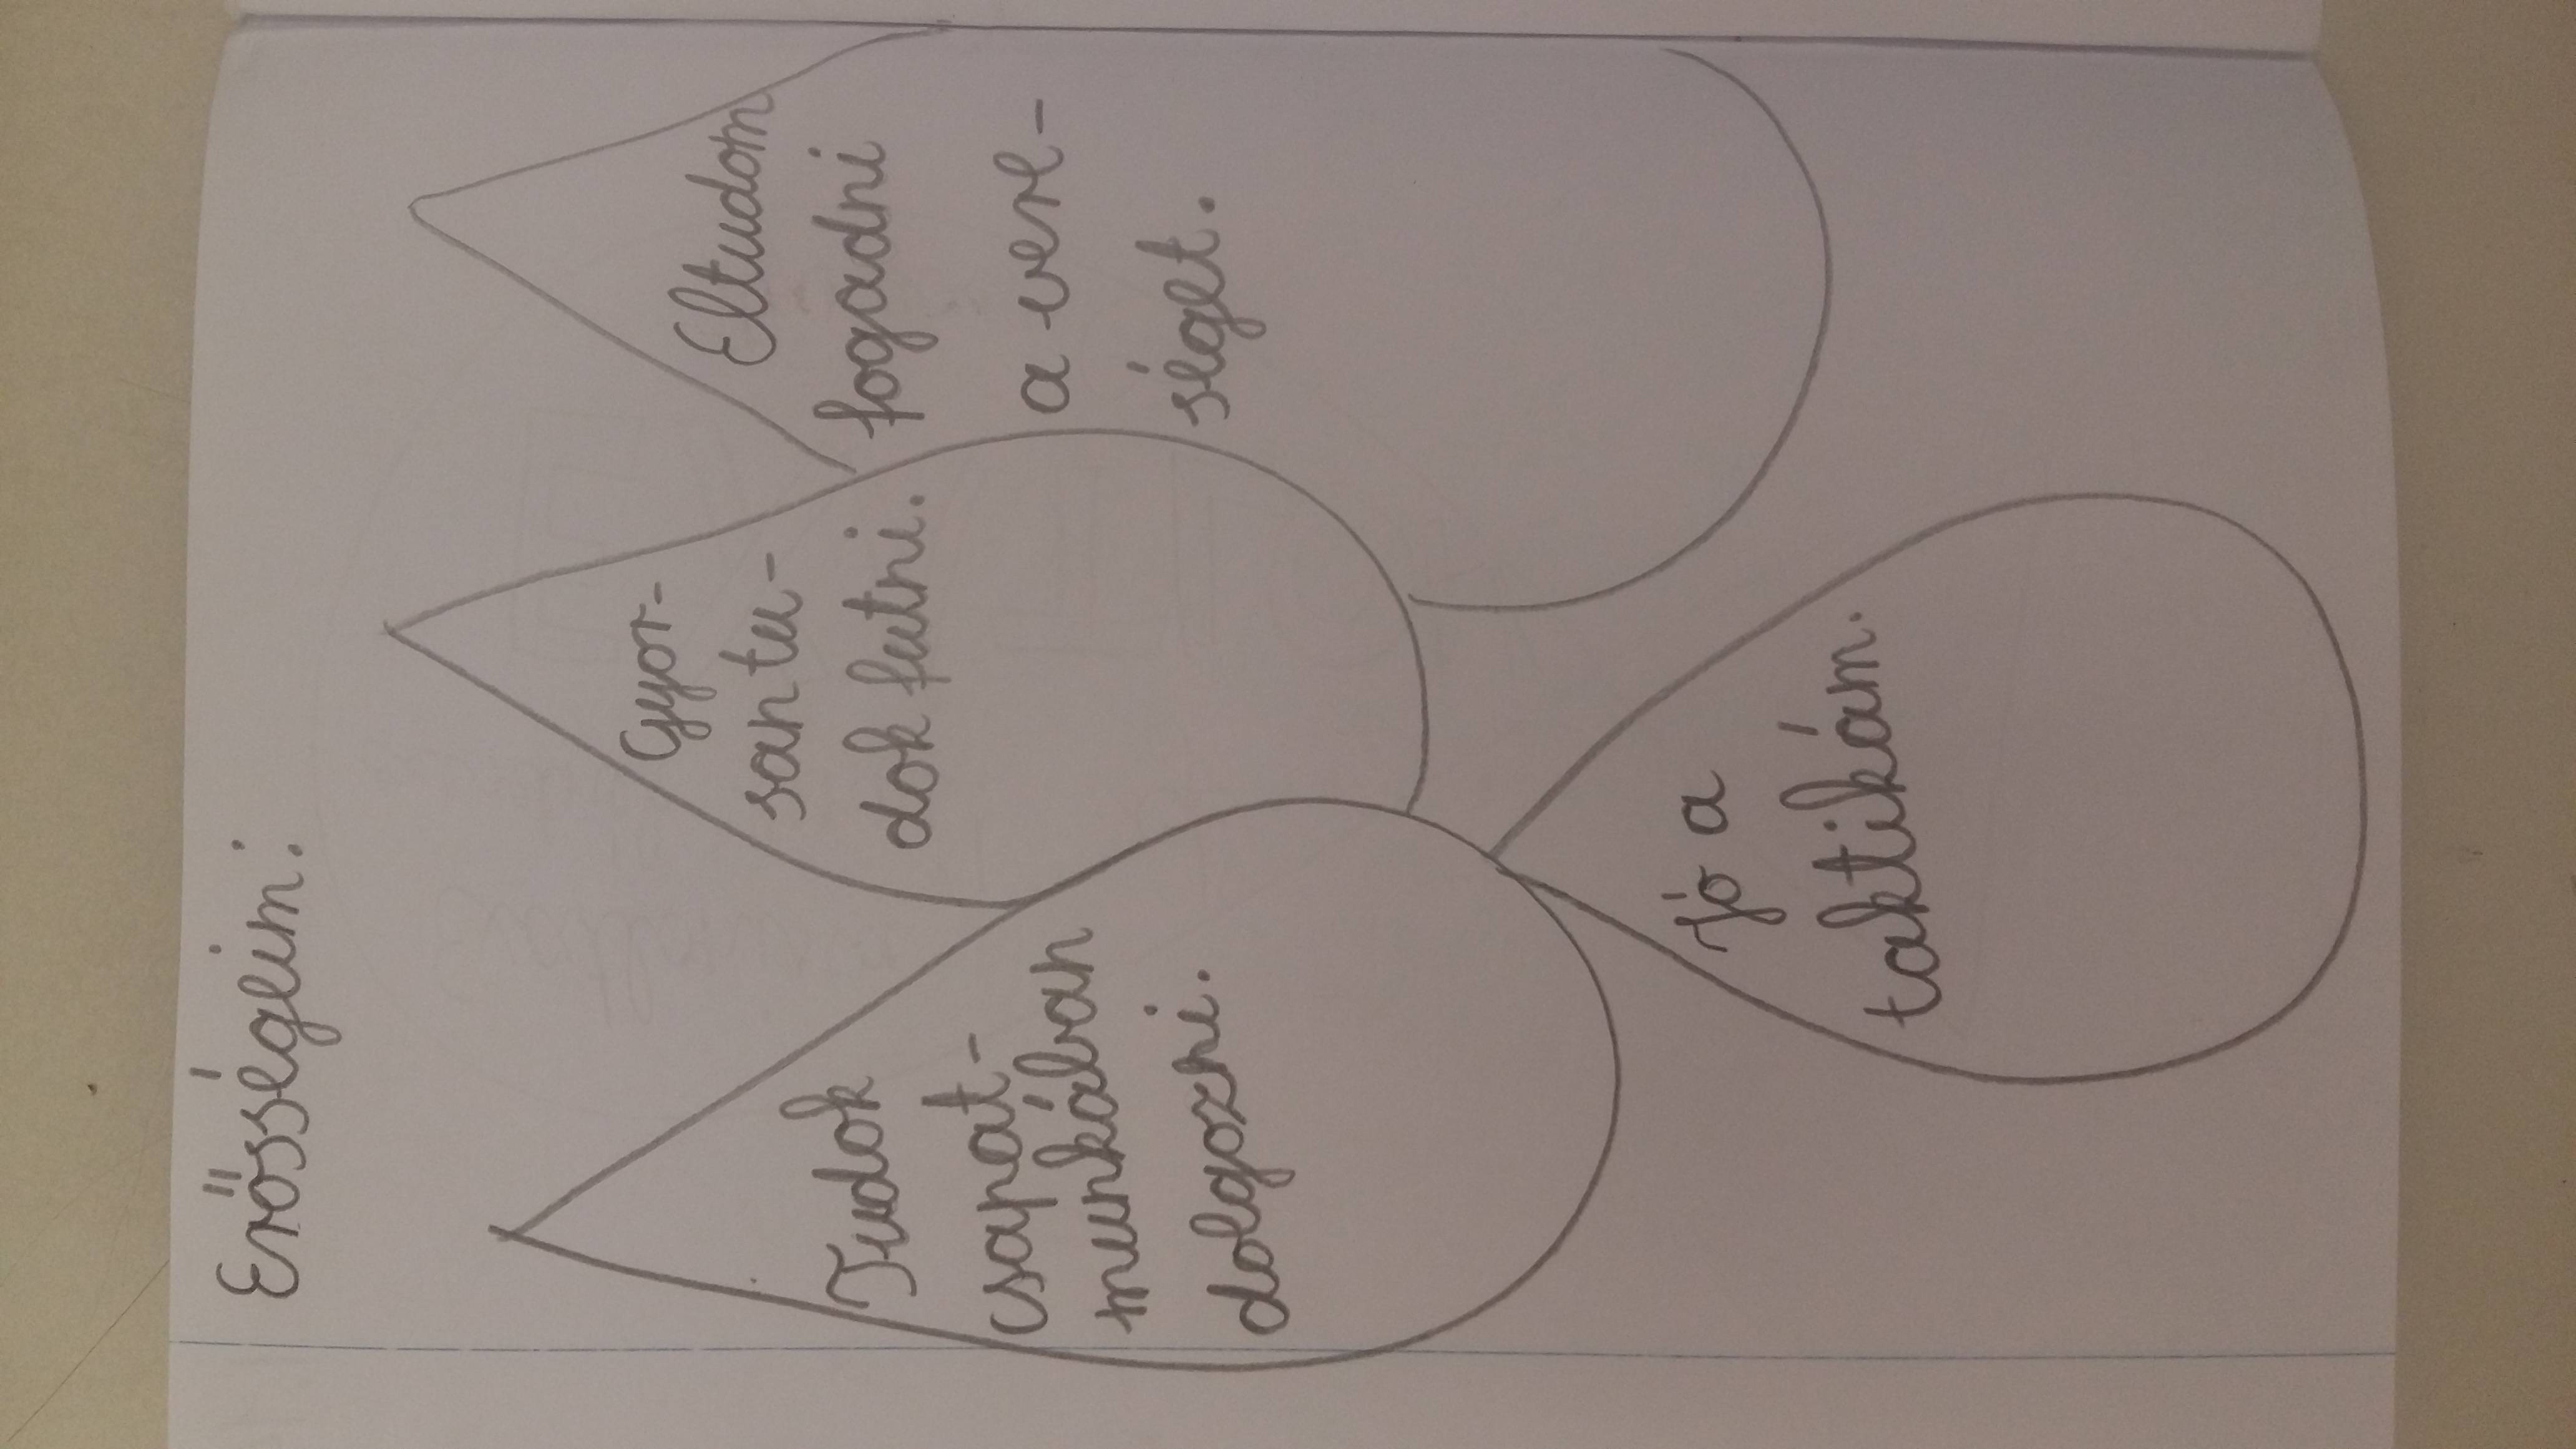 Erősségeim:
Tudok
csapat-
munkában
dolgozni.
Gyor-
san tu-
dok futni.
Eltudom
fogadni
a vere-
séget.
Jó a
taktikám.